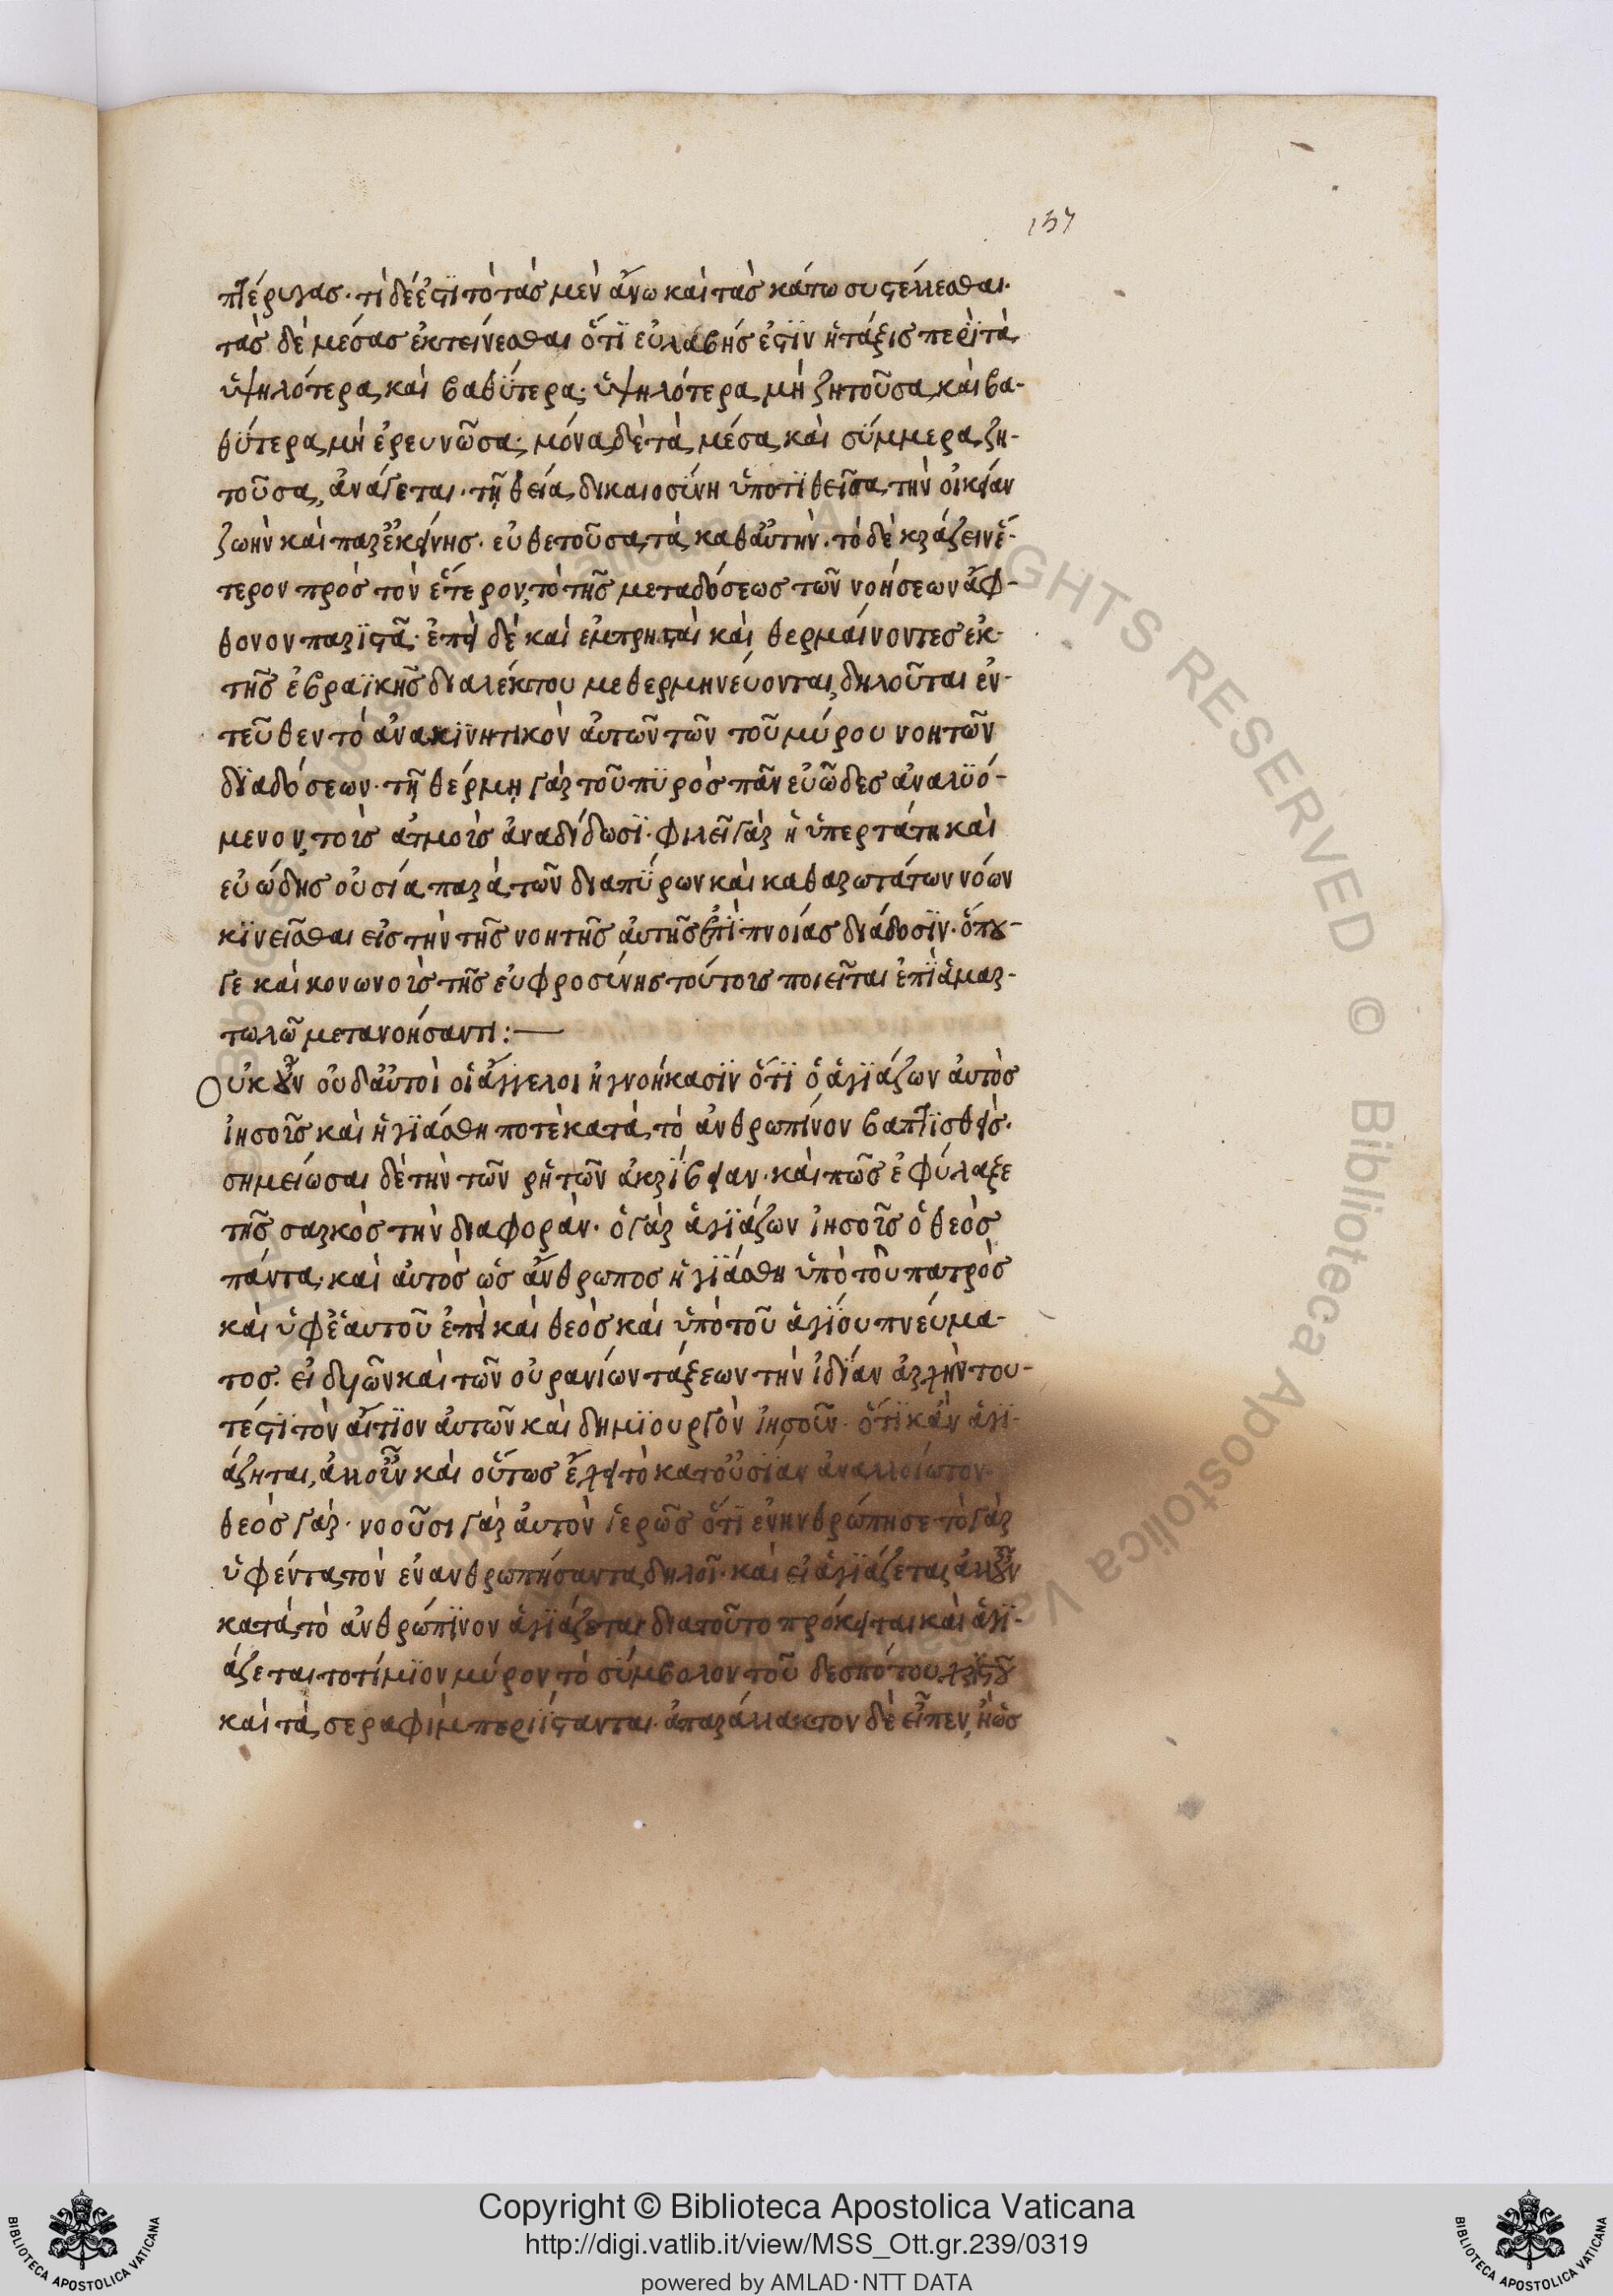 157
πτέρυγας· τί δέ ἐστι τὸ τὰς μὲν ἄνω καὶ τὰς κάτω συστέλλεσθαι·
τὰς δὲ μέσας ἐκτείνεσθαι ὅτι εὐλαβής ἐστιν ἡ τάξις περὶ τὰ
ὑψηλότερα καὶ βαθύτερα· ὑψηλότερα μὴ ζητοῦσα, καὶ βα-
θύτερα μὴ ἐρευνῶσα· μόνα δὲ τὰ μέσα καὶ σύμμερα ζη-
τοῦσα, ἀνάγεται· τῇ θεία δικαιοσίνη ὑποτιθεῖσα τὴν οἰκείαν
ζωὴν καὶ παρ ἐκείνης· εὐθετοῦσα τὰ καθ αὑτήν· τὸ δὲ κράζειν ἕ-
τερον πρὸς τὸν ἕτερον, τὸ τῆς μεταδόσεως τῶν νοήσεων ἄφ-
θονον παριστᾶ· ἐπεὶ δὲ καὶ ἐμπρησταὶ καὶ θερμαίνοντες ἐκ
τῆς ἑβραϊκῆς διαλέκτου μεθερμηνεύονται, δηλοῦται ἐν-
τεῦθεν τὸ ἀνακινητικὸν αὐτῶν τῶν τοῦ μύρου νοητῶν
διαδόσεων· τῇ θέρμῃ γὰρ τοῦ πυρὸς πᾶν εὐῶδες ἀναλυό-
μενον, τοῖς ἀτμοῖς ἀναδίδωσι· φιλεῖ γὰρ ἡ ὑπερτάτη καὶ
εὐώδης οὐσία παρὰ τῶν διαπύρων καὶ καθαρωτάτων νόων
κινεῖσθαι εἰς τὴν τῆς νοητῆς αὐτῆς ἐπιπνοίας διάδοσιν· ὅπου
γε καὶ κονωνοὺς τῆς εὐφροσίνης τούτους ποιεῖται ἐπὶ ἁμαρ-
τωλῶ μετανοήσαντι :—
Οὐκοῦν οὐδ αὐτοὶ οἱ ἄγγελοι ἠγνοήκασιν ὅτι ὁ ἁγιάζων αὐτὸς
ἰησοῦς καὶ ἡγιάσθη ποτὲ κατὰ τὸ ἀνθρωπίνον βαπτισθείς·
σημείωσαι δὲ τὴν τῶν ῥητῶν ἀκρίβειαν· καὶ πῶς ἐφύλαξε
τῆς σαρκὸς τὴν διαφοράν· ὁ γὰρ ἁγιάζων ἰησοῦς ὁ θεὸς
πάντα, καὶ αὐτὸς ὡς ἄνθρωπος ἡγιάσθη ὑπὸ τοῦ πατρὸς
καὶ ὑφ ἑαυτοῦ ἐπεὶ καὶ θεὸς καὶ ὑπὸ τοῦ ἁγίου πνεύμα-
τος. εἰδυιῶν καὶ τῶν οὐρανίων τάξεων τὴν ἰδίαν ἀρχὴν του-
τέστι τὸν αἴτιον αὐτῶν καὶ δημιουργὸν ἰησοῦν· ὅτι κἂν ἁγι-
άζηται, ἀλλ οὖν καὶ οὕτως ἔχει τὸ κατ οὐσίαν ἀναλλοίωτον·
θεὸς γάρ· νοοῦσι γὰρ αὐτὸν ἱερῶς ὅτι ἐνηνθρώπησε· τὸ γὰρ
ὑφέντα, τὸν ἐνανθρωπήσαντα δηλοῖ· καὶ εἰ ἁγιάζεται, ἀλλ οὖν
κατὰ τὸ ἀνθρώπινον ἁγιάζεται διατοῦτο πρόκειται καὶ ἁγι-
άζεται τοτίμιον μύρον, τὸ σύμβολον τοῦ δεσπότου χριστοῦ
καὶ τὰ σεραφὶμ περιίστανται· ἀπαράλλακτον δὲ εἶπεν, ἢ ὡς
Copyright © Biblioteca Apostolica Vaticana
http://digi.vatlib.it/view/MSS_Ott.gr.239/0319
powered by AMLAD·NTT DATA
BIBLIOTECA APOSTOLICA VATICANA
BIBLIOTECA APOSTOLICA VATICANA